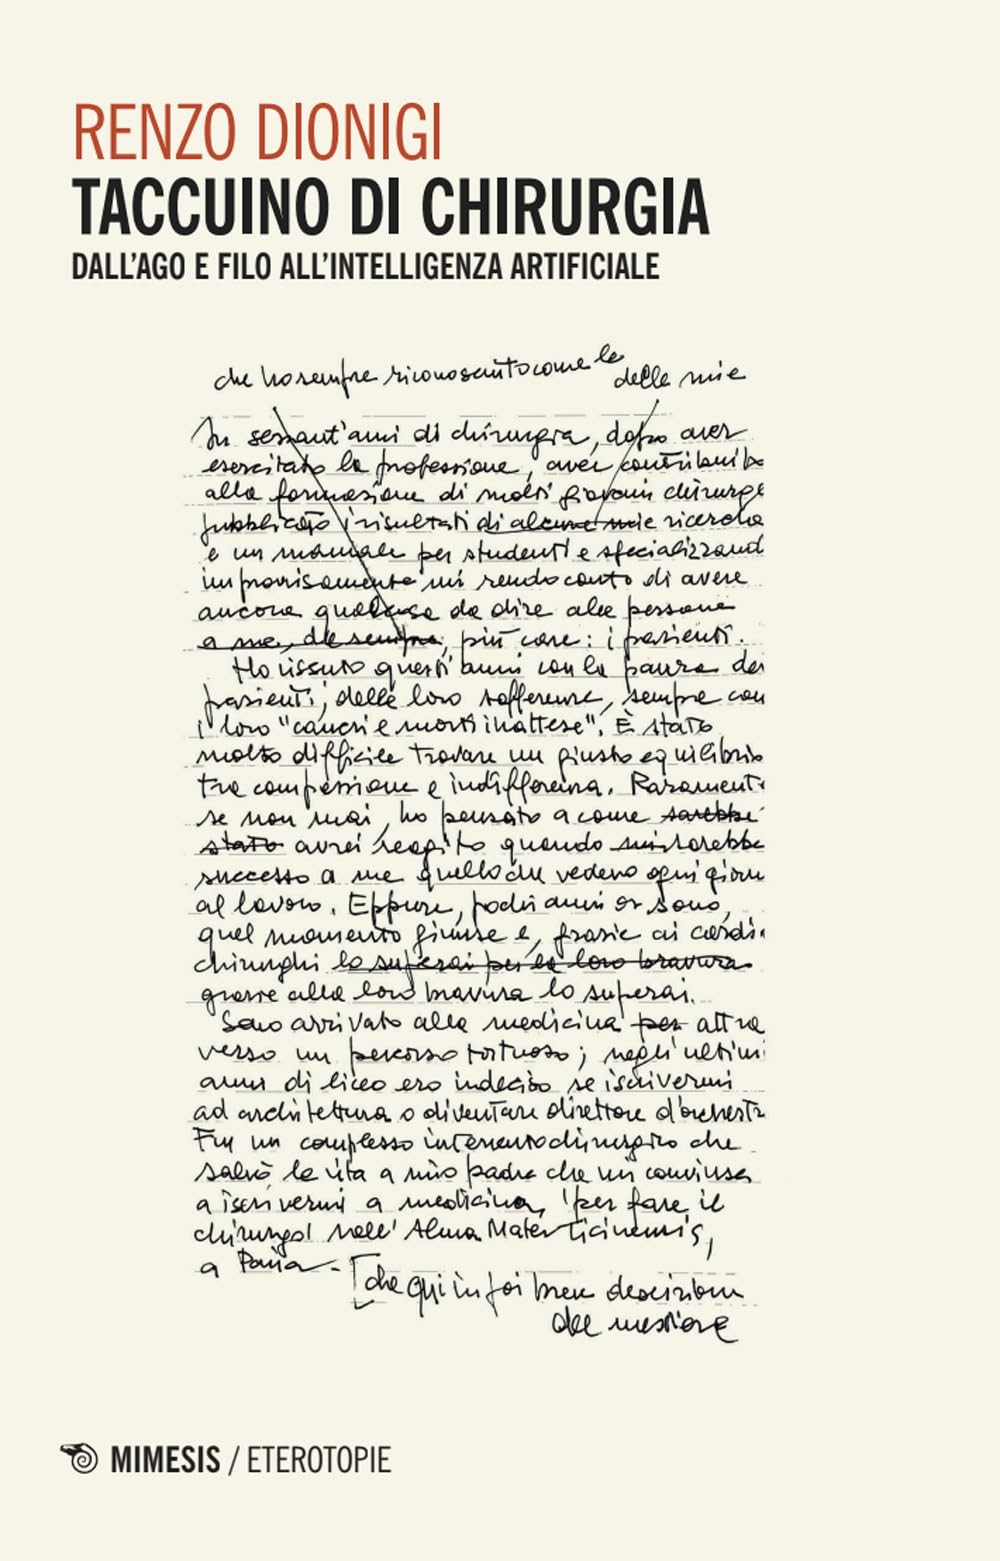 RENZO DIONIGI
TACCUINO DI CHIRURGIA
DALL'AGO E FILO ALL'INTELLIGENZA ARTIFICIALE
che ho sempre riconosciuto come le
delle mie
In sessant'anni di chirurgia, dopo aver
esercitato la professione, aver contribuito
alla formazione di molti giovani chirurghi
pubblicato i risultati di alcune mie ricerche
e un manuale per studenti e specializzandi
improvisamente mi rendo conto di avere
ancora qualcosa da dire alle persone
a me, da sempre, più care: i pazienti.
Ho vissuto questi anni con la paura dei
pazienti, delle loro sofferenze, sempre con
i loro "cancri e morti inattese". È stato
molto difficile trovare un giusto equilibrio
tra compassione e indifferenza. Raramente
se non mai, ho pensato a come sarebbe
stato avrei reagito quando mi sarebbe
successo a me quello che vedevo ogni giorno
al lavoro. Eppure, pochi anni or sono,
quel momento giunse e, grazie ai cardio
chirurghi lo superai per la loro bravura
grazie alla loro bravura lo superai.
Sono arrivato alla medicina per attra
verso un percorso tortuoso; negli ultimi
anni di liceo ero indeciso se iscrivermi
ad architettura o diventare direttore d'orchestra
Fu un complesso intervento chirurgico che
salvò la vita a mio padre che mi convinse
a iscrivermi a medicina, "per fare il
chirurgo" nell'Alma Mater Ticinensis,
a Pavia.
[che qui in poi breve descrizione
del mestiere
MIMESIS / ETEROTOPIE